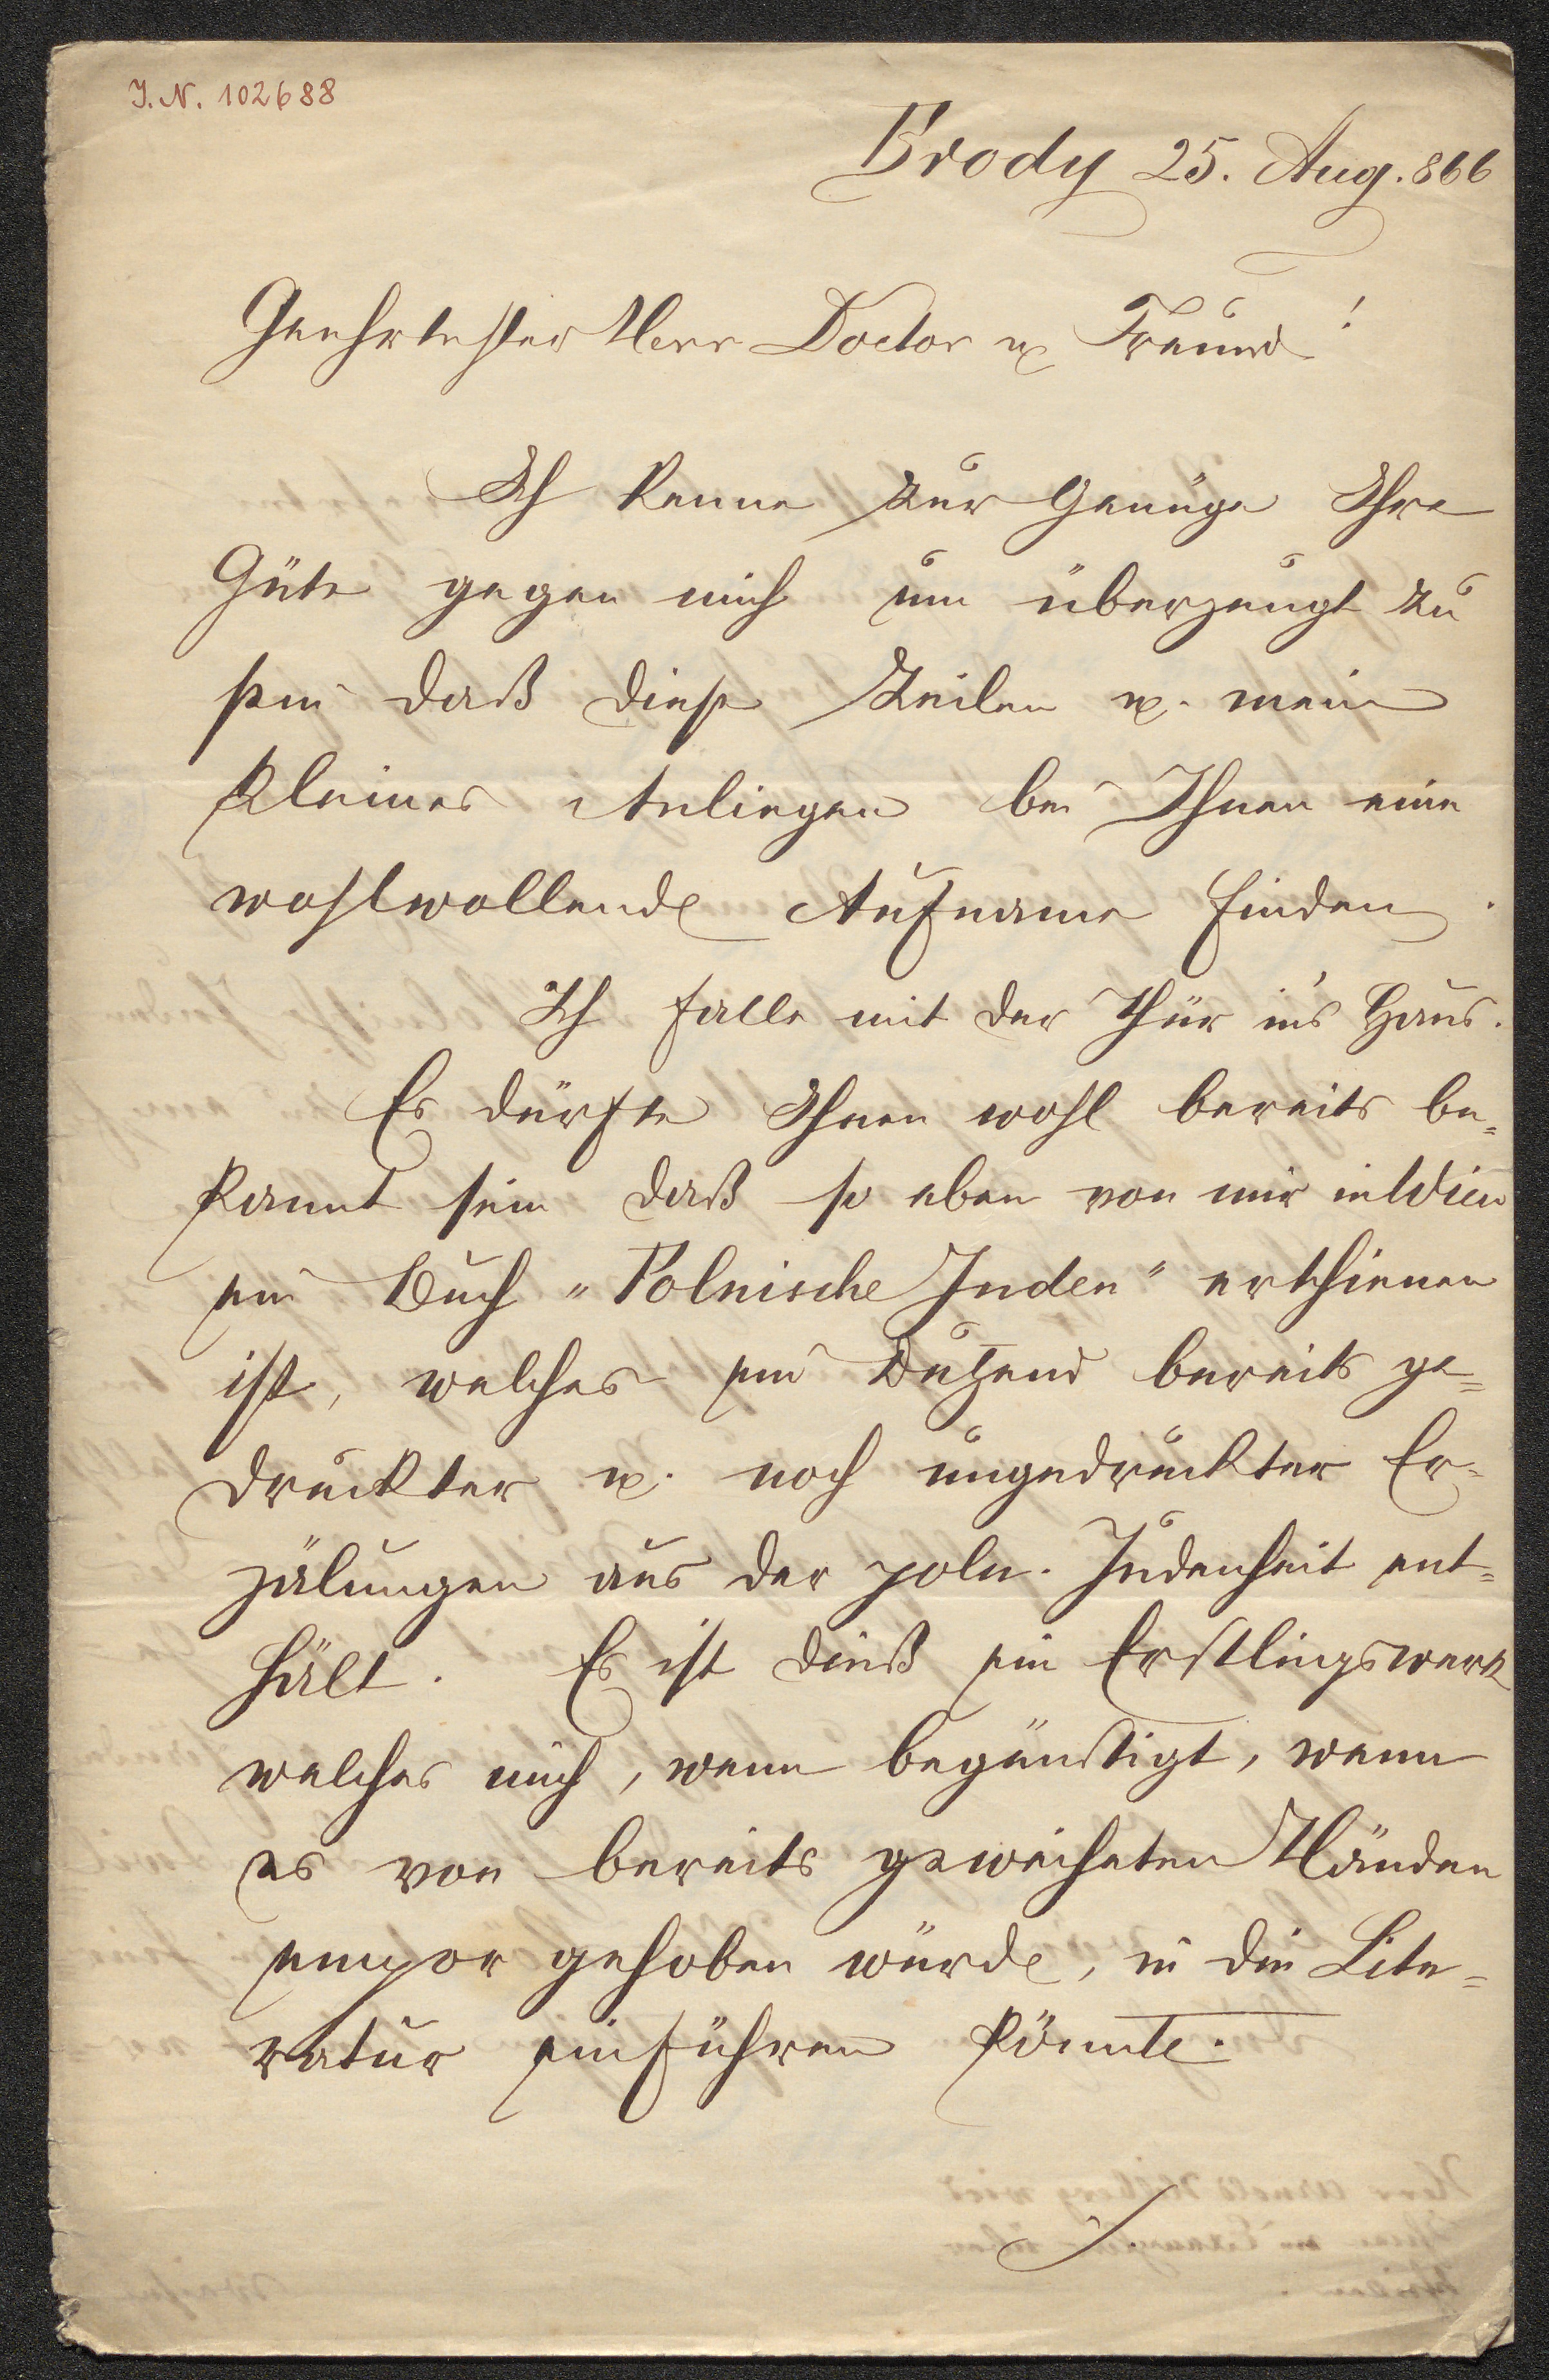 I. N. 102688
Brody 25. Aug. 866
Geehrtester Herr Doctor u Freund!
Ich kenne zur Genüge Ihre
Güte gegen mich um überzeugt zu
sein daß diese Zeilen u. mein
kleines Anliegen bei Ihnen eine
wohlwollende Aufname finden.
Ich falle mit der Thür in's Haus.
Es dürfte Ihnen wohl bereits be=
kannt sein daß so eben von mir in Wien
ein Buch "Polnische Juden" erschienen
ist, welches ein Dutzend bereits ge=
druckter u. noch ungedruckter Er=
zälungen aus der poln. Judenheit ent=
hält. Es ist dieß ein Erstlingswerk
welches mich, wenn begünstigt, wenn
es von bereits geweiheten Händen
empor gehoben würde, in die Lite=
ratur einführen könnte.